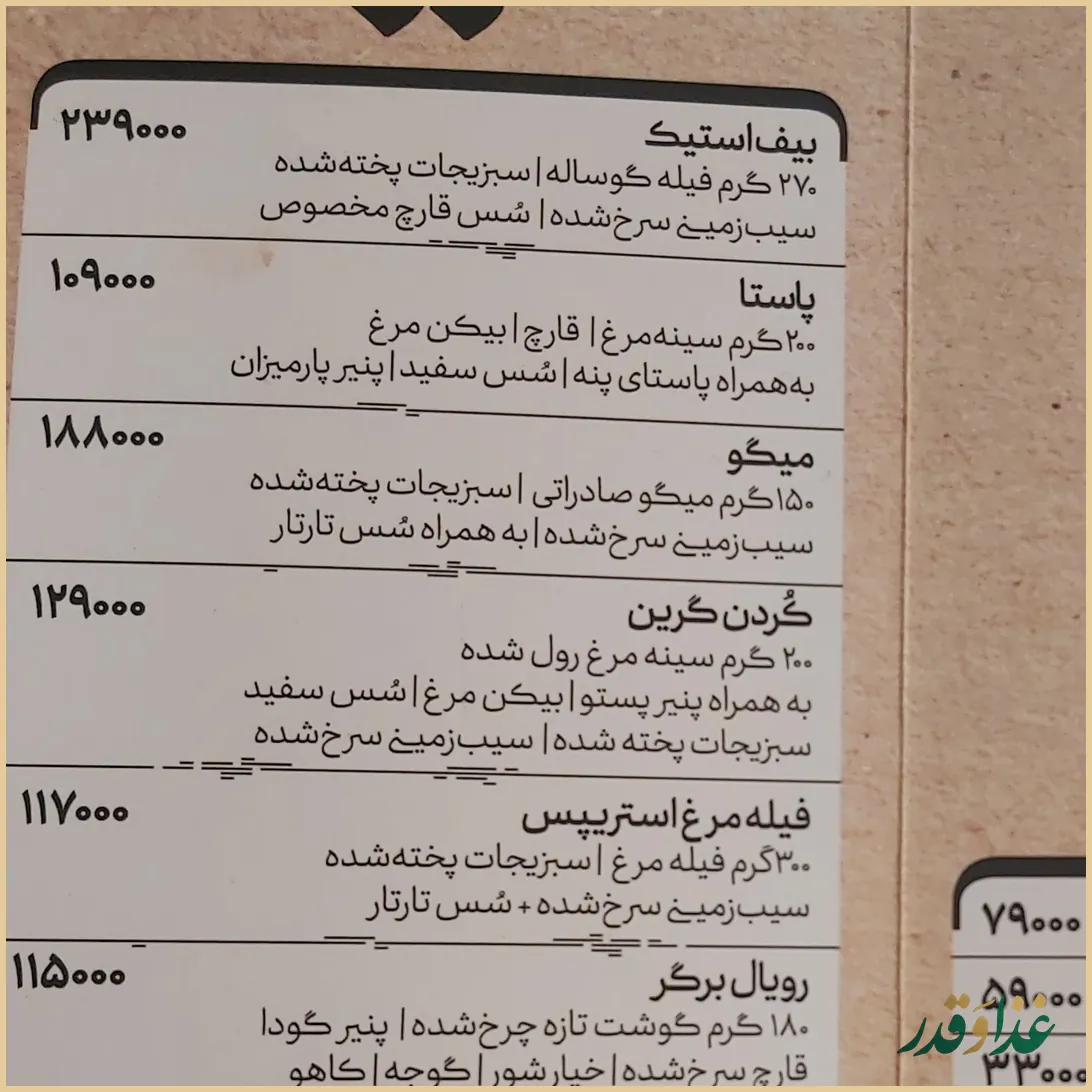 بیف‌استیک ۲۳۹۰۰۰
۲۷۰ گرم فیله گوساله | سبزیجات پخته‌شده
سیب‌زمینی سرخ‌شده | سُس قارچ مخصوص
پاستا ۱۰۹۰۰۰
۲۰۰گرم سینه‌مرغ | قارچ | بیکن مرغ
به‌همراه پاستای پنه | سُس سفید | پنیر پارمیزان
میگو ۱۸۸۰۰۰
۱۵۰گرم میگو صادراتی | سبزیجات پخته‌شده
سیب‌زمینی سرخ‌شده | به همراه سُس تارتار
کُردن گرین ۱۲۹۰۰۰
۲۰۰ گرم سینه مرغ رول شده
به همراه پنیر پستو | بیکن مرغ | سُس سفید
سبزیجات پخته شده | سیب‌زمینی سرخ‌شده
فیله‌مرغ‌استریپس ۱۱۷۰۰۰
۳۰۰گرم فیله مرغ | سبزیجات پخته‌شده
سیب‌زمینی سرخ‌شده + سُس تارتار
رویال‌برگر ۱۱۵۰۰۰
۱۸۰ گرم گوشت تازه چرخ‌شده | پنیر گودا
قارچ سرخ‌شده | خیارشور | گوجه | کاهو
۷۹۰۰۰
۵۹۰۰۰
۳۳۰۰۰
غذا و قدر